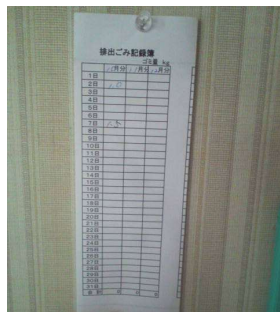 排出ごみ記録簿
ゴミ量 kg
月分 月分 月分
1日
2日
3日
4日
5日
6日
7日
8日
9日
10日
11日
12日
13日
14日
15日
16日
17日
18日
19日
20日
21日
22日
23日
24日
25日
26日
27日
28日
29日
30日
31日
合 計